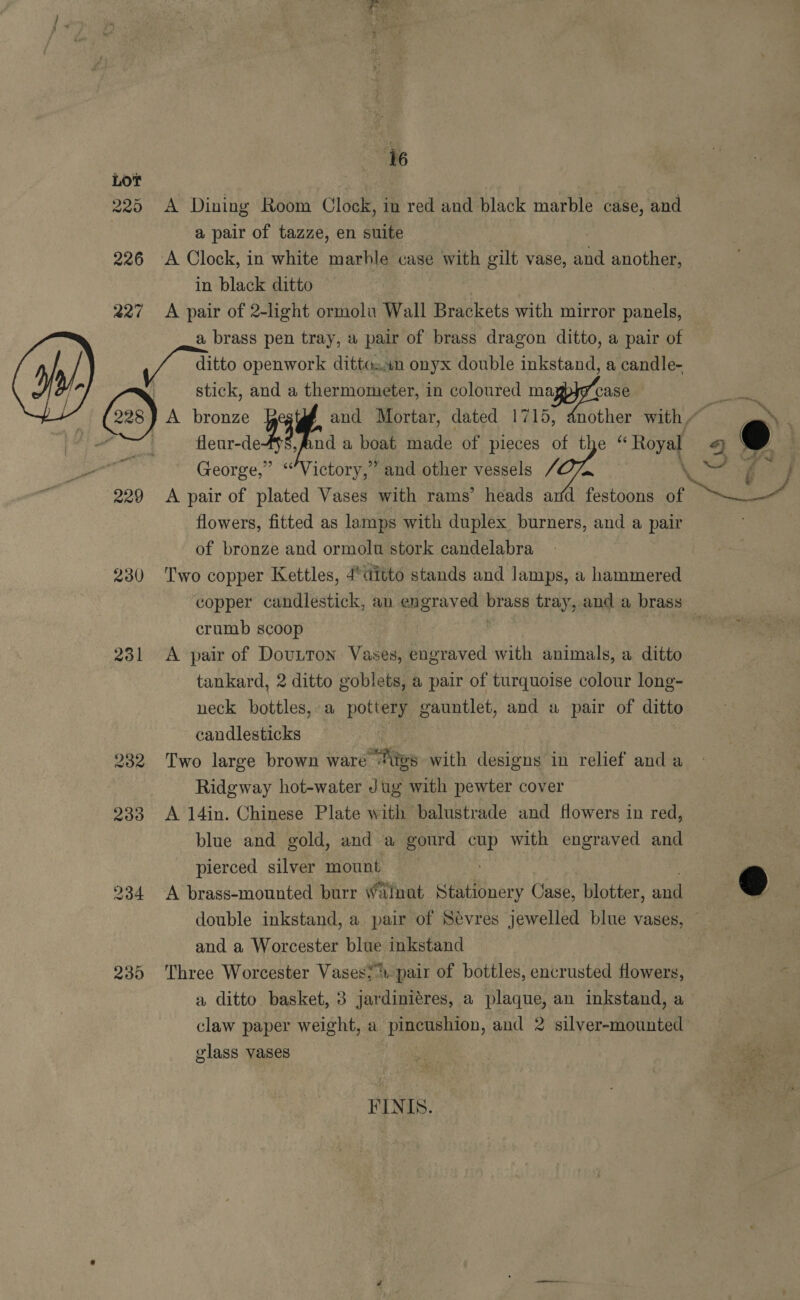 16
LOT
225 A Dining Room Clock, in red and black marble case, and
a pair of tazze, en suite
226 A Clock, in white marble case with gilt vase, and another,
in black ditto
227 A pair of 2-light ormolu Wall Brackets with mirror panels,
a brass pen tray, a pair of brass dragon ditto, a pair of
ditto openwork ditto, an onyx double inkstand, a candle-
stick, and a thermometer, in coloured marble case
228 A bronze Pestle and Mortar, dated 1715, another with
fleur-de-lys, and a boat made of pieces of the “Royal
George,” “Victory,” and other vessels
229 A pair of plated Vases with rams’ heads and festoons of
flowers, fitted as lamps with duplex burners, and a pair
of bronze and ormolu stork candelabra
230 Two copper Kettles, 4 ditto stands and lamps, a hammered
copper candlestick, an engraved brass tray, and a brass
crumb scoop
231 A pair of DOULTON Vases, engraved with animals, a ditto
tankard, 2 ditto goblets, a pair of turquoise colour long-
neck bottles, a pottery gauntlet, and a pair of ditto
candlesticks
232 Two large brown ware with designs in relief and a
Ridgway hot-water Jug with pewter cover
233 A 14in. Chinese Plate with balustrade and flowers in red,
blue and gold, and a gourd cup with engraved and
pierced silver mount
234 A brass-mounted burr Walnut Stationery Case, blotter, and
double inkstand, a pair of Sèvres jewelled blue vases,
and a Worcester blue inkstand
235 Three Worcester Vases, a pair of bottles, encrusted flowers,
a ditto basket, 3 jardinières, a plaque, an inkstand, a
claw paper weight, a pincushion, and 2 silver-mounted
glass vases
FINIS.